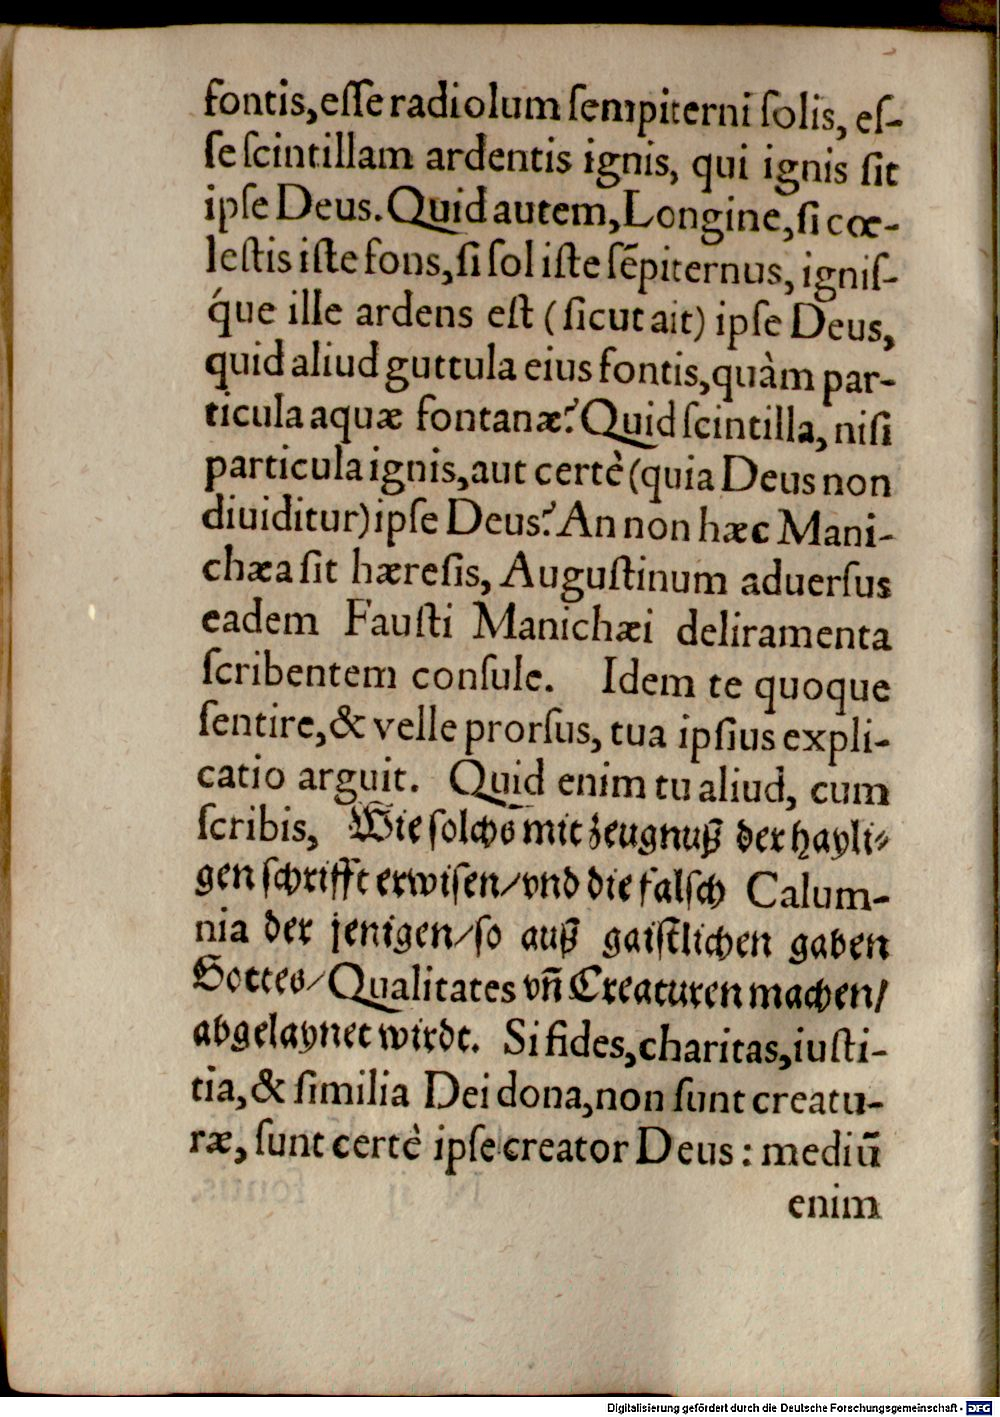 fontis, eſſe radiolum ſempiterni ſolis, eſ-
ſe ſcintillam ardentis ignis, qui ignis ſit
ipſe Deus. Quid autem, Longine, ſi cœ-
leſtis iſte fons, ſi ſol iſte ſẽpiternus, igniſ-
q́ue ille ardens eſt (ſicut ait) ipſe Deus,
quid aliud guttula eius fontis, quàm par-
ticula aquæ fontanæ? Quid ſcintilla, niſi
particula ignis, aut certè (quia Deus non
diuiditur) ipſe Deus? An non hæc Mani-
chæa ſit hæreſis, Auguſtinum aduerſus
eadem Fauſti Manichæi deliramenta
ſcribentem conſule. Idem te quoque
ſentire, & velle prorſus, tua ipſius expli-
catio arguit. Quid enim tu aliud, cum
ſcribis, Wie ſolchs mit zeugnuß der hayli⸗
gen ſchrifft erwiſen/ vnd die falſch Calum-
nia der jenigen/ ſo auß gaiſtlichen gaben
Gottes/ Qualitates vñ Creaturen machen/
abgelaynet wirdt. Si fides, charitas, iuſti-
tia, & ſimilia Dei dona, non ſunt creatu-
ræ, ſunt certè ipſe creator Deus: mediũ
enim
Digitalisierung gefördert durch die Deutsche Forschungsgemeinschaft - DFG